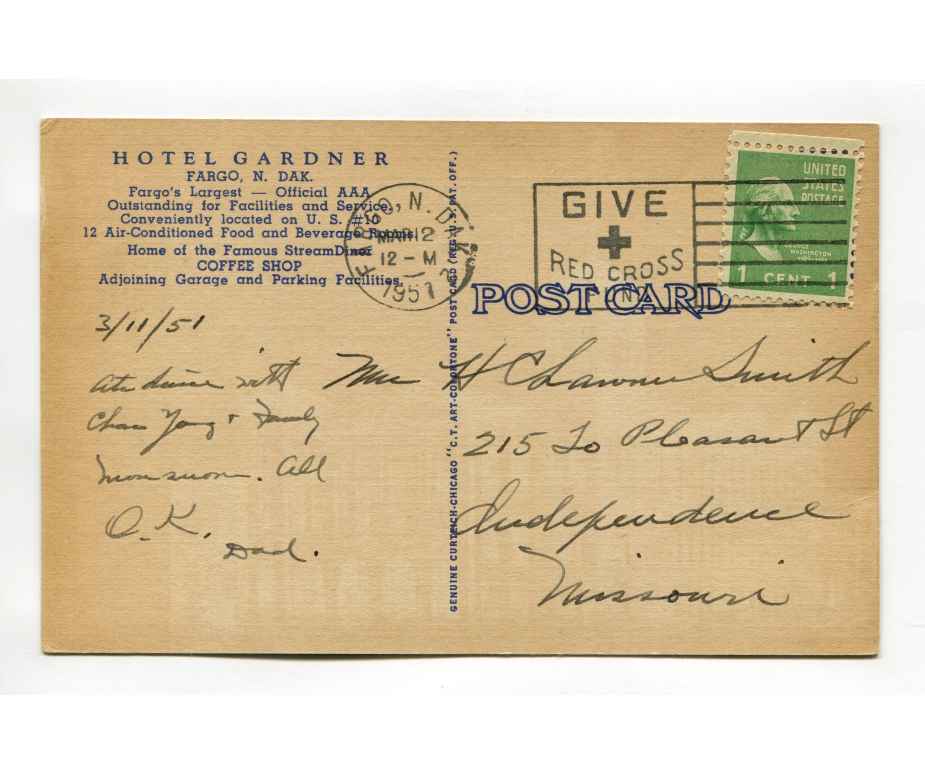 HOTEL GARDNER
FARGO, N. DAK.
Fargo's Largest — Official AAA
Outstanding for Facilities and Service
Conveniently located on U. S. #10
12 Air-Conditioned Food and Beverage Rooms
Home of the Famous StreamDiner
COFFEE SHOP
Adjoining Garage and Parking Facilities.
FARGO, N. DAK.
MAR 12
12 - M
1951
GIVE
RED CROSS
UNITED
STATES
POSTAGE
GEORGE
WASHINGTON
1 CENT 1
POST CARD
GENUINE CURTEICH-CHICAGO "C.T. ART-COLORTONE" POST CARD (REG. U.S. PAT. OFF.)
3/11/51
Ate dinner with
Chas Young & Family
. All
O.K.
Dad.
H C Smith
215 So Pleasant St
Independence
Missouri